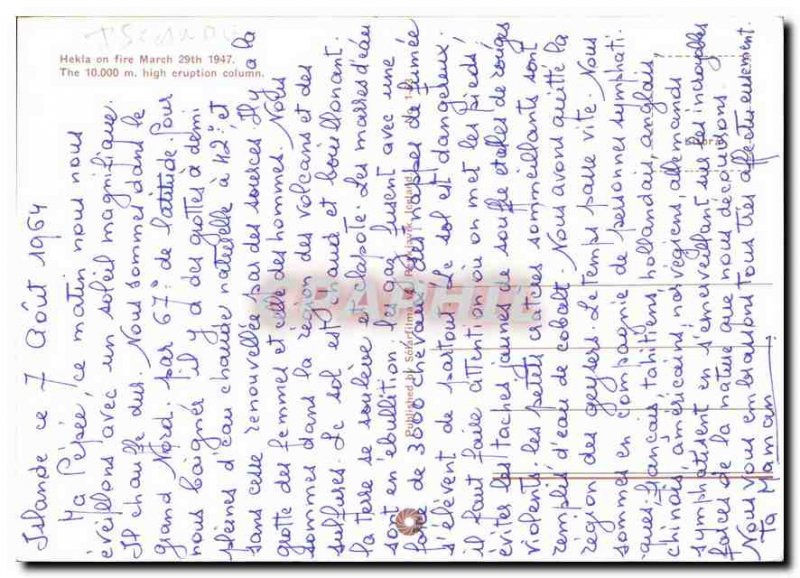 Hekla on fire March 29th 1947.
The 10.000 m. high eruption column.
Islande ce 7 Août 1964
Ma Pépée, ce matin nous nous
éveillons avec un soleil magnifique.
It chauffe dur. Nous sommes dans le
grand Nord, par 67° de latitude. Pour
nous baigner il y a des grottes à demi
pleines d'eau chaude naturelle à 42° et
sans cesse renouvellée par des sources. Il y a la
grotte des femmes et celle des hommes. Nous
sommes dans la région des volcans et des
sulfures. Le sol est chaud et bouillonant
la terre se soulève et clapote. Les masses d'eau
sont en ébullition les gaz fusent avec une
force de 3000 chevaux des nappes de fumée
s'élèvent de partout. Le sol est dangereux.
il faut faire attention où on met les pieds,
évitez les taches jaunes de souffle et celles de rouges
violents; les petits cratères sommeillants sont
remplis d'eau de cobalt. Nous avons quitté la
région des geysers. Le temps passe vite. Nous
sommes en compagnie de personnes symphati-
ques; français tahitiens, hollandais, anglais,
chinois, américains, norvégiens, allemands
symphatisent en s'émerveillant sur les incroyables
forces de la nature que nous découvrons.
Nous vous embrassons tous très affectueusement.
Ta Maman
Published by Sólarfilma Reykjavik Iceland
CPAPHIL